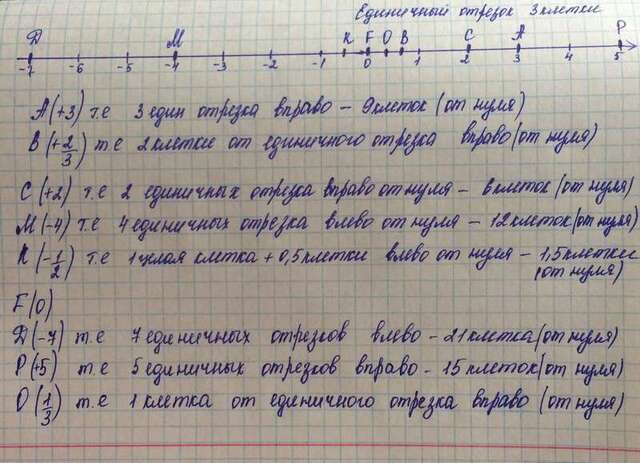 Единичный отрезок 3 клетки
D M K F O B C A P
-7 -6 -5 -4 -3 -2 -1 0 1 2 3 4 5
A(+3) т.е 3 един отрезка вправо – 9 клеток (от нуля)
B(+2/3) т.е 2 клетки от единичного отрезка вправо (от нуля)
C(+2) т.е 2 единичных отрезка вправо от нуля – 6 клеток (от нуля)
M(-4) т.е 4 единичных отрезка влево от нуля – 12 клеток (от нуля)
K(-1/2) т.е 1 целая клетка + 0,5 клетки влево от нуля – 1,5 клетки
(от нуля)
F(0)
D(-7) т.е 7 единичных отрезков влево – 21 клетка (от нуля)
P(+5) т.е 5 единичных отрезков вправо – 15 клеток (от нуля)
O(1/3) т.е 1 клетка от единичного отрезка вправо (от нуля)